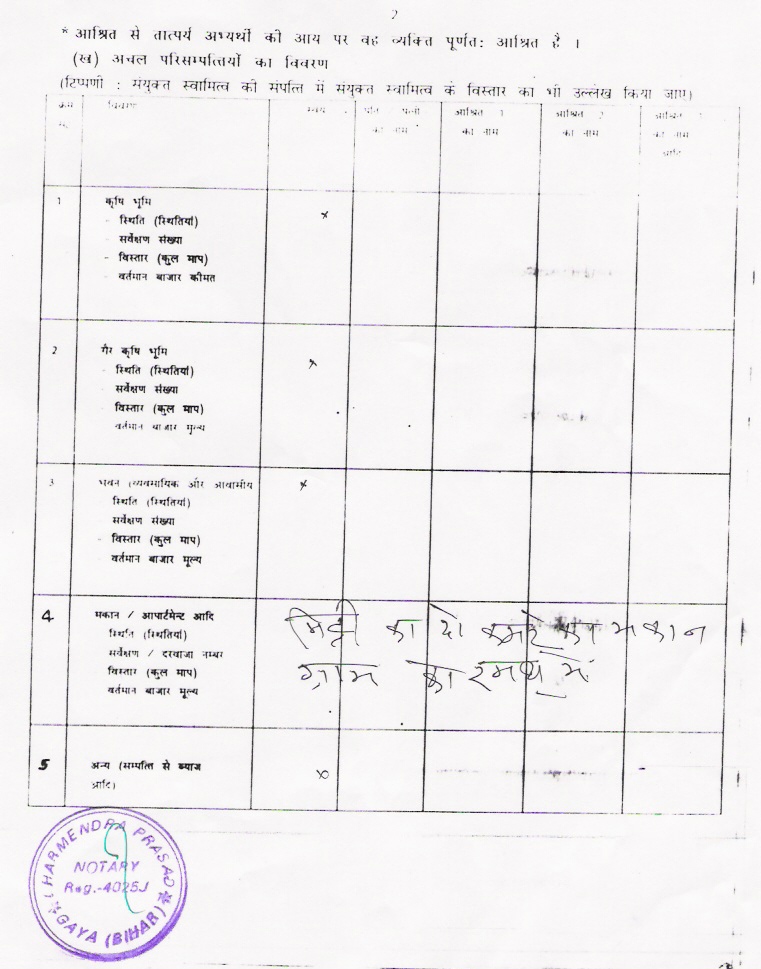 2
* आश्रित से तात्पर्य अभ्यर्थी की आय पर वह व्यक्ति पूर्णत: आश्रित है ।
(ख) अचल परिसम्पत्तियों का विवरण
(टिप्पणी : संयुक्त स्वामित्व की संपत्ति में संयुक्त स्वामित्व के विस्तार का भी उल्लेख किया जाए)
क्रम विवरण स्वयं पति पत्नी आश्रित 1 आश्रित 2 आश्रित
का नाम का नाम का नाम का नाम
आदि
1 कृषि भूमि x
- स्थिति (स्थितियां)
- सर्वेक्षण संख्या
- विस्तार (कुल माप)
- वर्तमान बाजार कीमत
2 गैर कृषि भूमि x
- स्थिति (स्थितियां)
- सर्वेक्षण संख्या
- विस्तार (कुल माप)
वर्तमान बाजार मूल्य
3 भवन (व्यवसायिक और आवासीय x
स्थिति (स्थितियां)
- सर्वेक्षण संख्या
- विस्तार (कुल माप)
- वर्तमान बाजार मूल्य
4 मकान / आपार्टमेन्ट आदि मिट्टी का दो कमरे का मकान
स्थिति (स्थितियां)
सर्वेक्षण / दरवाजा नम्बर ग्राम में
विस्तार (कुल माप)
वर्तमान बाजार मूल्य
5 अन्य (सम्पत्ति से ब्याज x
आदि)
HARMENDRA PRASAD
NOTARY
Reg.-4025J
GAYA (BIHAR)